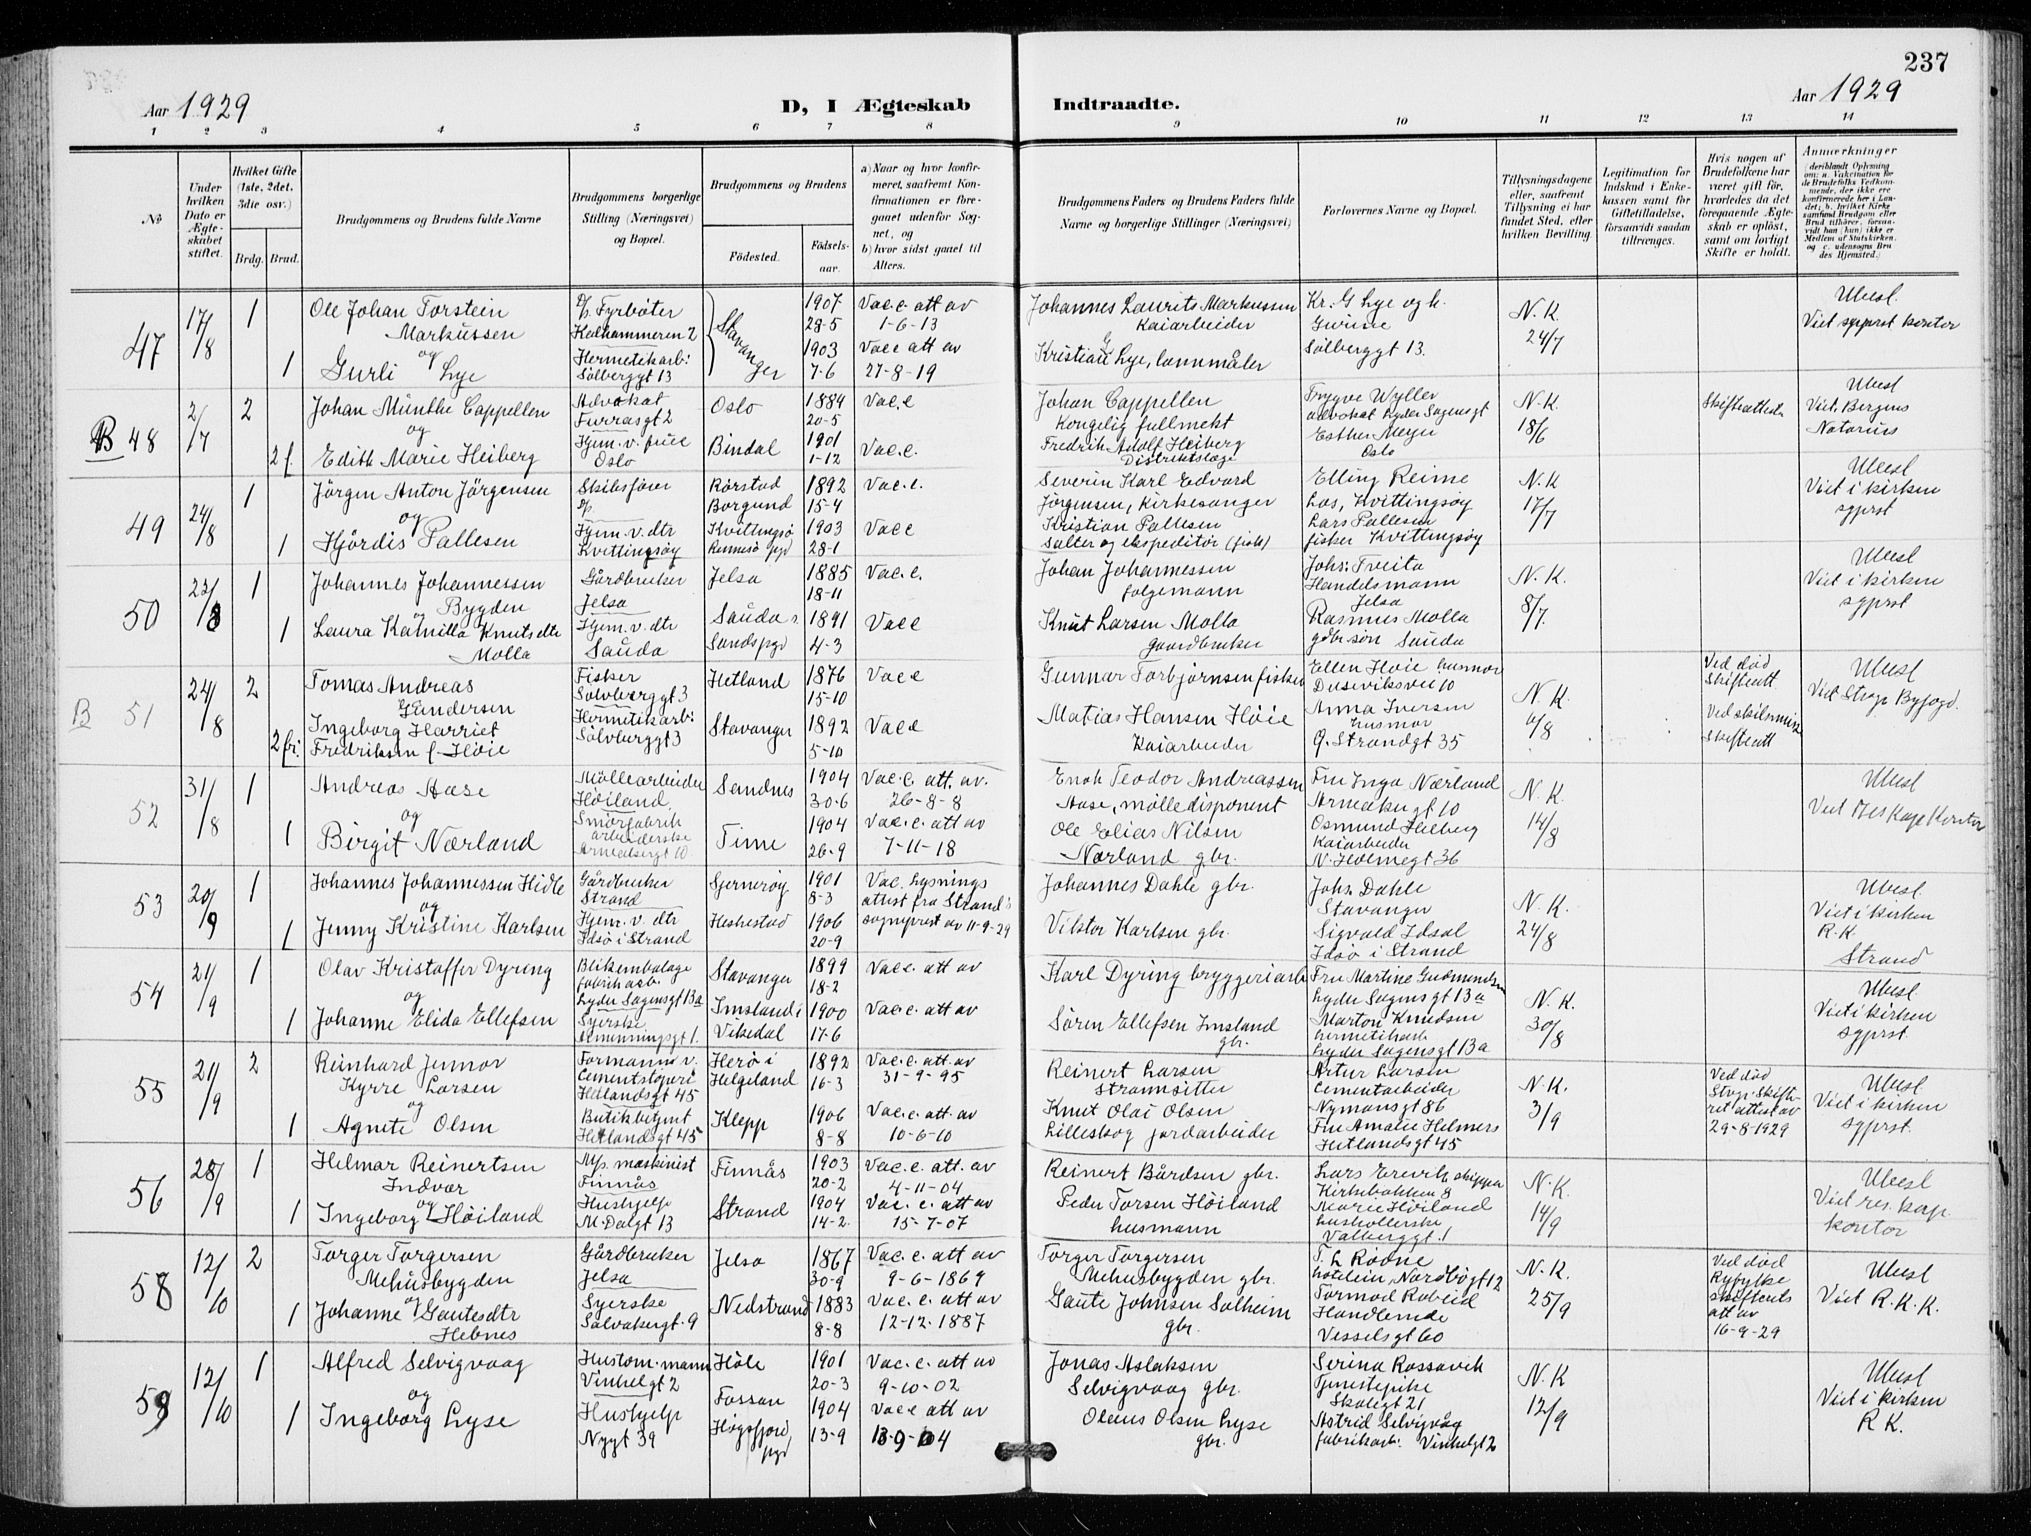 237
Aar 1929
D, I Ægteskab Indtraadte.
Aar 1929
1 2 3 4 5 6 7 8 9 10 11 12 13 14
No.
Under hvilken Dato er Ægteskabet stiftet.
Hvilket Gifte (1ste, 2det, 3die osv.)
Brdg. Brud.
Brudgommens og Brudens fulde Navne
Brudgommens borgerlige Stilling (Næringsvei) og Bopæl.
Brudgommens og Brudens
Födested.
Födselsaar.
a) Naar og hvor konfirmeret, saafremt Konfirmationen er foregaaet udenfor Sognet, og
b) hvor sidst gaaet til Alters.
Brudgommens Faders og Brudens Faders fulde Navne og borgerlige Stillinger (Næringsvei)
Forlovernes Navne og Bopæl.
Tillysningsdagene eller, saafremt Tillysning ei har fundet Sted, efter hvilken Bevilling.
Legitimation for Indskud i Enkekassen samt for Giftetilladelse, forsaavidt saadan tiltrænges.
Hvis nogen af Brudefolkene har været gift för, hvorledes da det foregaaende Ægteskab er oplöst, samt om lovligt Skifte er holdt.
Anmærkninger
47 17/8 1
Ole Johan Torstein
Markussen
og
1 Gurli Lye
Fyrbøter
Kalhammeren 2
Hermetikarb:
Sølberggt 13
Stavanger
1907
28-5
1903
7-6
Vac.c. att av
1-6-13
Vacc att av
27-8-19
Johannes Laurits Markussen
Kaiarbeider
Kristian G Lye, lønnmåler
Kr. G Lye og h.
Gurine
Sølberggt 13.
N. K.
24/7
Ubesl.
Viet sgprst. kontor
B 48 2/7 2
Johan Munthe Cappellen
og
2 f. Edith Marie Heiberg
Advokat
Furrasgt 2
Hjem. v. frue
Oslo
Oslo
Bindal
1884
20-5
1901
1-12
Vac.c
Vac.c.
Johan Cappellen
Kongelig fullmekt
Fredrik Adolf Heiberg
Distriktslæge
Trygve Wyller
advokat Lyder Sagensgt
Esther Meyer
Oslo
N. K.
18/6
Skifteattest
Ubesl
Viet. Bergens
Notarius
49 24/8 1
Jörgen Anton Jörgensen
og
1 Hjördis Pallesen
Skibsfører
Hjem. v. dtr
Kvittingsøy
Rørstad
Borgund
Kvittingsø
Rennesø pgd
1892
15-4
1903
28-1
Vac.c.
Vacc
Severin Karl Edvard
Jørgensen, Kirkesanger
Kristian Pallesen
salter og ekspeditør (fisk)
Elling Reime
Los, Kvittingsøy
Lars Pallesen
fisker Kvittingsøy
N. K
17/7
Ubesl
Viet i kirken
sgprst
50 23/8 1
Johannes Johannessen
Bygden
og
1 Laura Kamilla Knutsdtr
Molla
Gårdbruker
Jelsa
Hjem. v. dtr
Sauda
Jelsa
Sauda s.
Sandspgd
1885
18-11
1891
4-3
Vac.c.
Vacc
Johan Johannessen
følgemann
Knut Larsen Molla
gaardbruker
Johs: Tveita
Handelsmann
Jelsa
Rasmus Molla
gdbr. søn Sauda
N. K.
8/7.
Ubesl
Viet i kirken
sgprst
B 51 24/8 2
Tomas Andreas
Gundersen
Ingeborg Harriet
2 fr. Fredriksen f. Høie
Fisker
Sølvberggt 3
Hermetikarb:
Sølvberggt 3
Hetland
Stavanger
1876
15-10
1892
5-10
Vacc
Vacc
Gunnar Torbjørnsen fisker
Matias Hansen Høie
Kaiarbeider
Ellen Høie husmor
Duseviksvei 10
Anna Iversen
husmor
Ø. Strandgt 35
N. K.
6/8
Ved død
Skifteatt
Ved skilsmisse
Skifteatt
Ubesl
Viet Stvgr Byfogd.
52 31/8 1
Andreas Aase
og
1 Birgit Nærland
Møllearbeider
Høiland
Smørfabrik
arbeiderske
Arnedsgt 10
Sandnes
Time
1904
30-6
1904
26-9
Vac.c. att. av.
26-8-8
Vac.c. att av
7-11-18
Enok Teodor Andreassen
Aase, mølledisponent
Ole Elias Nilsen
Nærland gbr.
Fru Inga Nærland
Osmund Helberg
Kaiarbeider
N. Holmegt 36
N. K.
14/8
Ubesl
Viet res kap kontor
53 20/9 1
Johannes Johannessen Hidle
og
1 Jenny Kristine Karlsen
Gårdbruker
Strand
Hjem. v. dtr
Idsø i Strand
Sjernerøy
Heskestad
1901
8-3
1906
20-9
Vac. Lysnings
attest fra Strand s
sogneprest av 11-9-29
Johannes Dahle gbr.
Viktor Karlsen gbr.
Johs. Dahle
Stavanger
Sigvald Idsal
Idsø i Strand
N. K.
24/8
Ubesl.
Viet i kirken
R. K
Strand
54 21/9 1
Olav Kristoffer Dyring
og
1 Johanne Elida Ellefsen
Blikemballage
fabrikarb.
Lyder Sagensgt 13a
Syerske
Almenningsgt 1.
Stavanger
Imsland i
Vikedal
1899
18-2
1900
17-6
Vacc. att av
Vac.c. att av
Karl Dyring bryggeriarb
Søren Ellefsen Imsland
gbr.
Fru Martine Gudmundsen
Lyder Sagensgt 13a
Marton Knudsen
hermetikarb
Lyder Sagensgt 13a
N. K.
30/8
Ubesl.
Viet i kirken
sgprst.
55 21/9 2
Reinhard Jenvor
Kyrre Larsen
og
1 Agnete Olsen
Formann v.
Cementstøperi
Hetlandsgt 45
Butikbetjent
Hetlandsgt 45
Herø i
Helgeland
Klepp
1892
16-3
1906
8-8
Vac.c. att av
31-9-95
Vac.c. att. av
10-6-10
Reinert Larsen
strandsitter
Knut Olai Olsen
Lilleskog jordarbeider
Artur Larsen
Cementarbeider
Nymansgt 86
Fru Amalie Helmers
Hetlandsgt 45
N. K.
3/9
Ved død
Stvgr. Skifte-
ret attest av
29-8-1929
Ubesl
Viet i kirken
sgprst.
56 28/9 1
Helmar Reinertsen
Indvær
og
1 Ingeborg Høiland
M/s. maskinist
Finnås
Hushjelp
M. Dalgt 13
Finnås
Strand
1903
20-2
1904
14-2
Vac.c. att. av
4-11-04
Vac. c. att av
15-7-07
Reinert Bårdsen gbr.
Peder Torsen Høiland
husmann
skipper
Kirkebakken 8
Marie Høiland
husholderske
Valberggt. 1
N. K.
14/9
Ubesl
Viet res. kap
kontor
58 12/10 2
Torger Torgersen
Mehusbygden
og
1 Johanne Gautesdtr
Hebnes
Gårdbruker
Jelsa
Syerske
Jelsa
Nedstrand
1867
30-9
1883
8-8
Vac.c. att av
9-6-1869
Vac.c. att av
12-12-1887
Torger Torgersen
Mehusbygden gbr.
Gaute Johnsen Solheim
gbr.
T. L. Roone
hoteleier, Nordbøgt 12
Tormod Robeid
Handlende
Vesselsgt 60
N. K.
25/9
Ved død
Ryfylke
skifterets
att av
16-9-29
Ubesl
Viet R. K. K.
59 12/10 1
Alfred Selvigvaag
og
1 Ingeborg Lyse
Hustom. mann
Vinkelgt 2
Hushjelp
Nygt 39
Høle
Forsan
Høgsfjord
pgd
1901
20-3
1904
13-9
Vac.c. att av
9-10-02
Vacc att av
Jonas Aslaksen
Selvigvaag gbr.
Oleus Olsen Lyse
gbr.
Serina Rossavik
Tjenestepike
Skolegt 21
Astrid Selvigvåg
fabrikarb. Vinkelgt 2
N. K
12/9
Ubesl
Viet i kirken
R K.